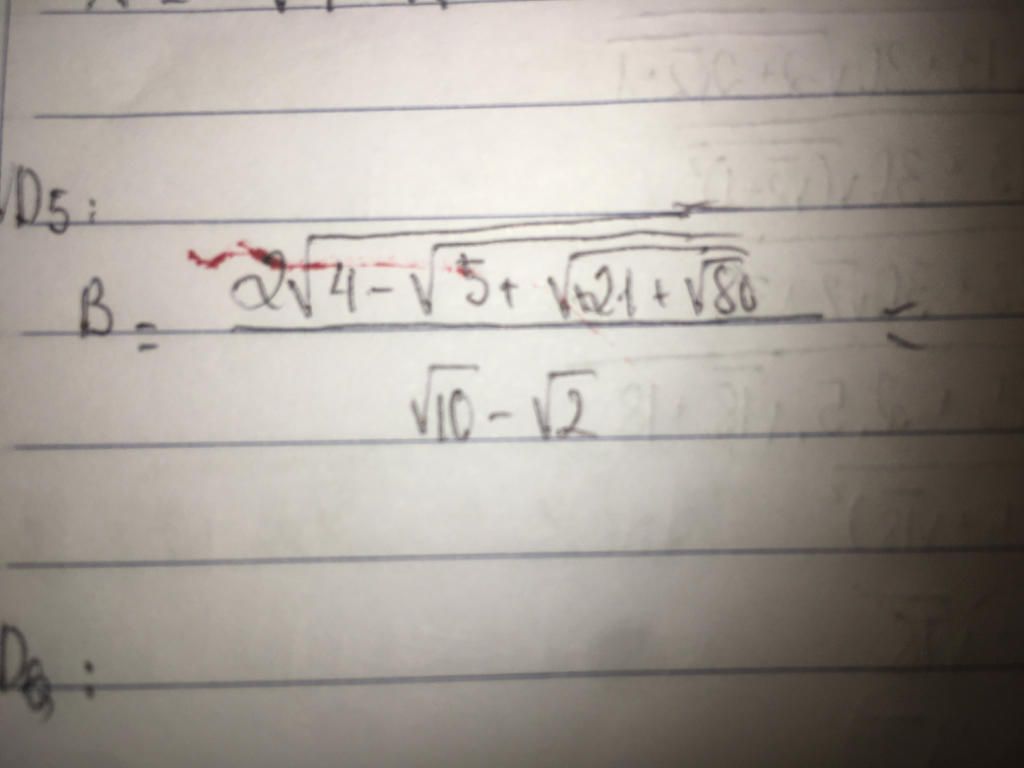 D5:
B = \frac{2\sqrt{4-\sqrt{5+\sqrt{21+\sqrt{80}}}}}{\sqrt{10}-\sqrt{2}} =
D6: